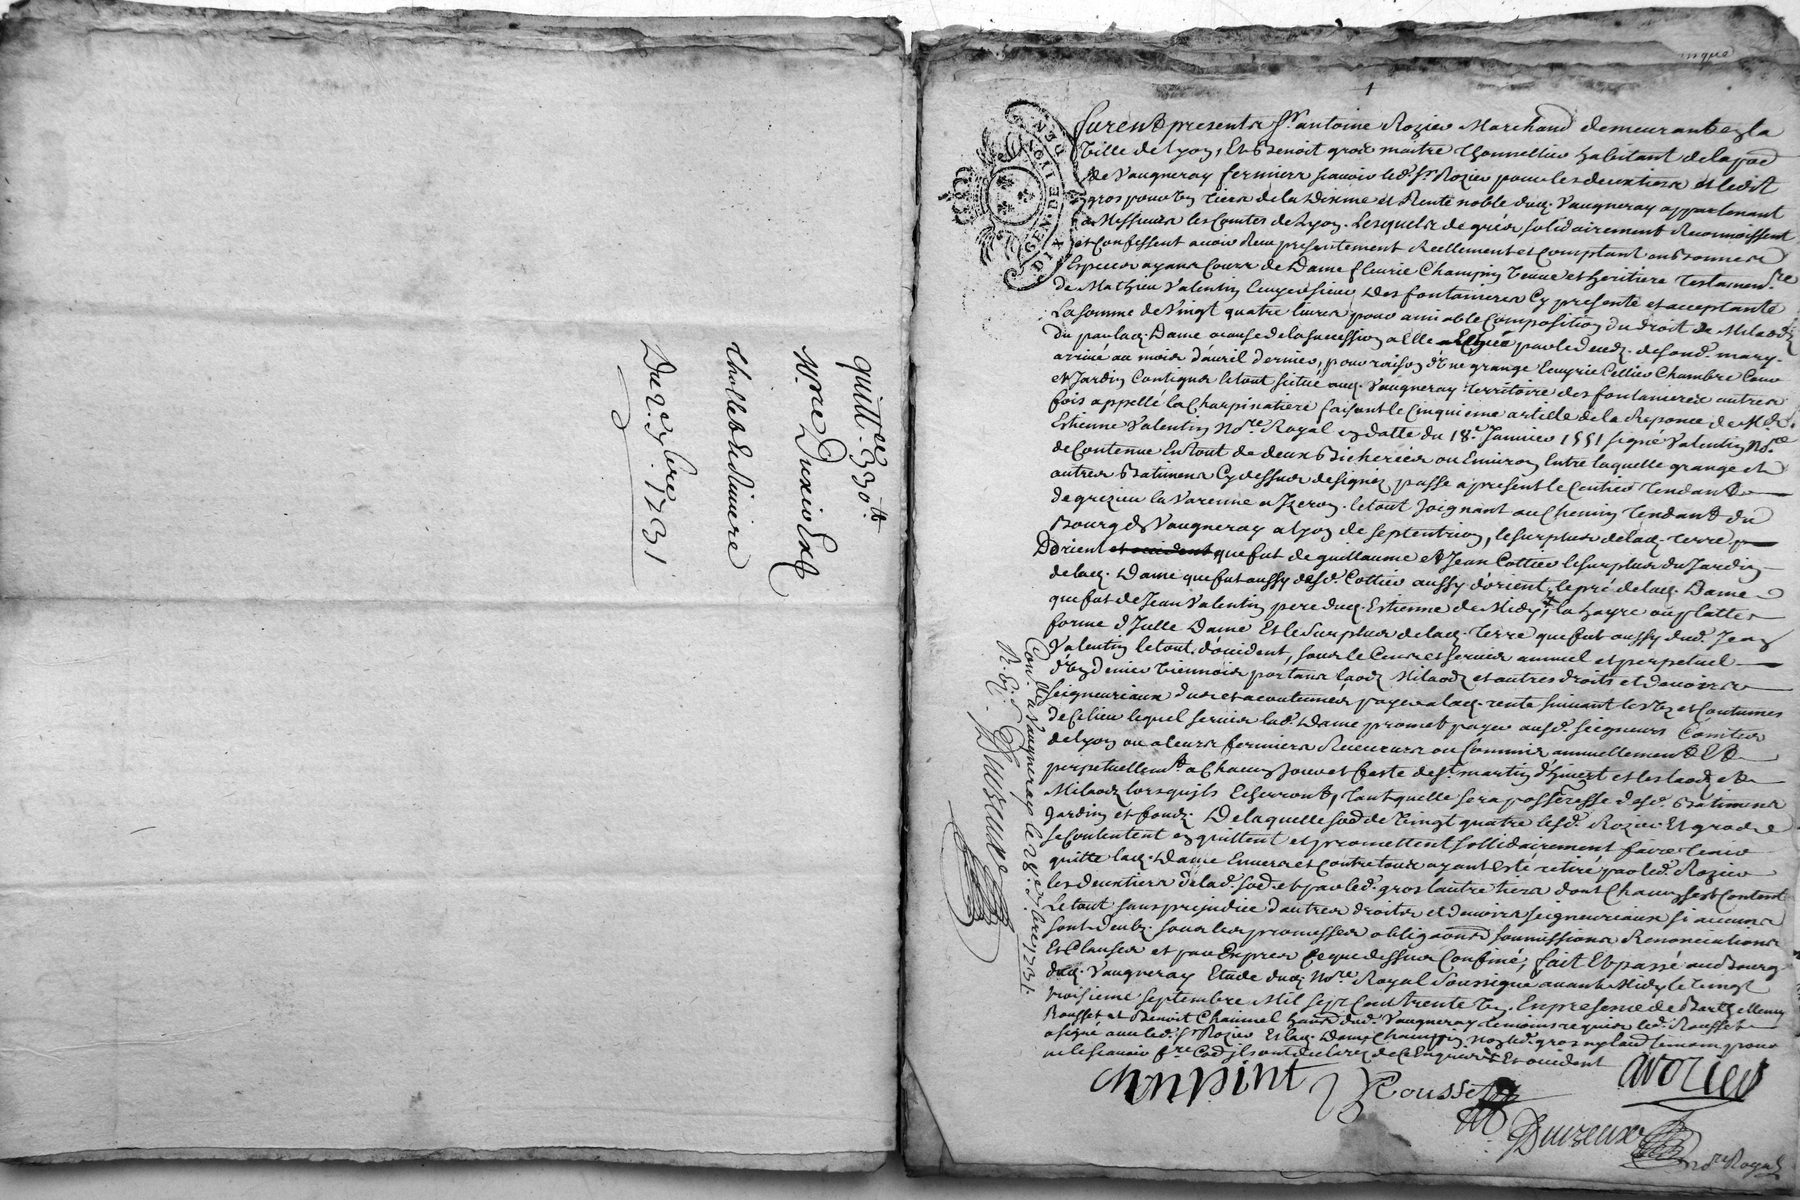 quitt.ce 330 tt
M.tre
Du 2.e 7bre 1731
1
GEN. DE LYON
DIX DEN
furent presents Sr antoine Rozier Marchand demeurant en la
Ville de Lyon, Et Benoit gros maitre Thonnellier habitant de la
de Vaugneray fermiers scavoir led. Sr Rozier pour les deux tiers et ledit
gros pour un tiers de la Disme et Rente noble dud. Vaugneray appartenant
a Messieurs les Comtes de Lyon. Lesquels de gré solidairement Reconnoissent
et Confessent avoir Receu presentement Reellement et Comptant en bonnes
Especes ayans Cours de Dame fleurie Champin Veuve et heritiere Testamen.re
de Mathieu Valentin Des fontanieres Cy presente et acceptante
La somme de Vingt quatre livres pour amiable Composition du droit de Milaods
Du par lad. Dame a cause de la succession a Elle par le deceds de son d. mary
arrivé au mois d'avril dernier, pour raison d'Une grange Ecuyrie Cellier Chambre Cour
et Jardin Contigus le tout situé aud. Vaugneray territoire des fontanieres autres
fois appellé la Charpinatiere faisant le Cinquieme article de la Reponce de Me
Estienne Valentin No.re Royal en datte du 18.e Janvier 1551 signé Valentin No.re
de Contenue En tout de deux Bicherées ou Environ Entre laquelle grange et
autres Batimens Cy dessus designez passe a present le Centier Tendant
de grezieu la Varenne a Izeron. le tout Joignant au Chemin Tendant du
Bourg de Vaugneray a Lyon de septentrion, le surplus de lad. Terre
D'orient et occident que fut de guillaume et Jean Cottier le surplus du Jardin
de lad. Dame que fut aussy desd. Cottier aussy d'orient, le pré de lad. Dame
que fut de Jean Valentin pere dud. Estienne de Midy, la haye ou platte
forme d'Icelle Dame Et le surplus de lad. Terre que fut aussy dud. Jean
Valentin le tout d'occident, sous le Cens et servis annuel et perpetuel
d'Un denier Viennois portans laods Milaods et autres droits et devoirs
seigneuriaux dus et acoutumés payer a lad. rente suivant les Us et Coutumes
de Ce lieu lequel servis lad. Dame promet payer ausd. seigneurs Comtes
de Lyon ou a leurs fermiers Receveurs ou Commis annuellement Et
perpetuellem.t a Chacun Jour et feste de St martin d'hivert et les laods et
Milaods lorsquils Echerront, tant quelle sera possesse desd. Batimens
Jardin et fonds. De laquelle so.e de Vingt quatre led. Rozier Et gros
se Contentent en quittent et promettent sollidairement faire tenir
quitte lad. Dame Envers et Contre tous ayant Esté retiré par led. Rozier
les deux tiers de lad. so.e et par led. gros l'autre tiers dont Chacun se Content
Le tout sans prejudice d'autres droits et devoirs seigneuriaux si aucuns
sont deubs. sous les promesses obligaons soumissions Renonciations
Et Clauses et Ce que dessus Confiné, fait Et passé aud Bourg
dud. Vaugneray Etude dud. No.re Royal Soussigné avant Midy le Vingt
troisieme septembre Mil Sept Cent trente Un, En presence de Barthellemy
Rousset et Benoit hans dud. Vaugneray temoins requis led. Rousset
a signé avec led. Sr Rozier Et lad. Dame Champin non led. gros ny lautre temoin pour
ne le scavoir f.re de Ce Enquis Et occident
Con.llé a Vaugneray le 28.e 7bre 1731.
Duzeux
Champint
Rousset
a rozier
Duzeux
no.re Royal